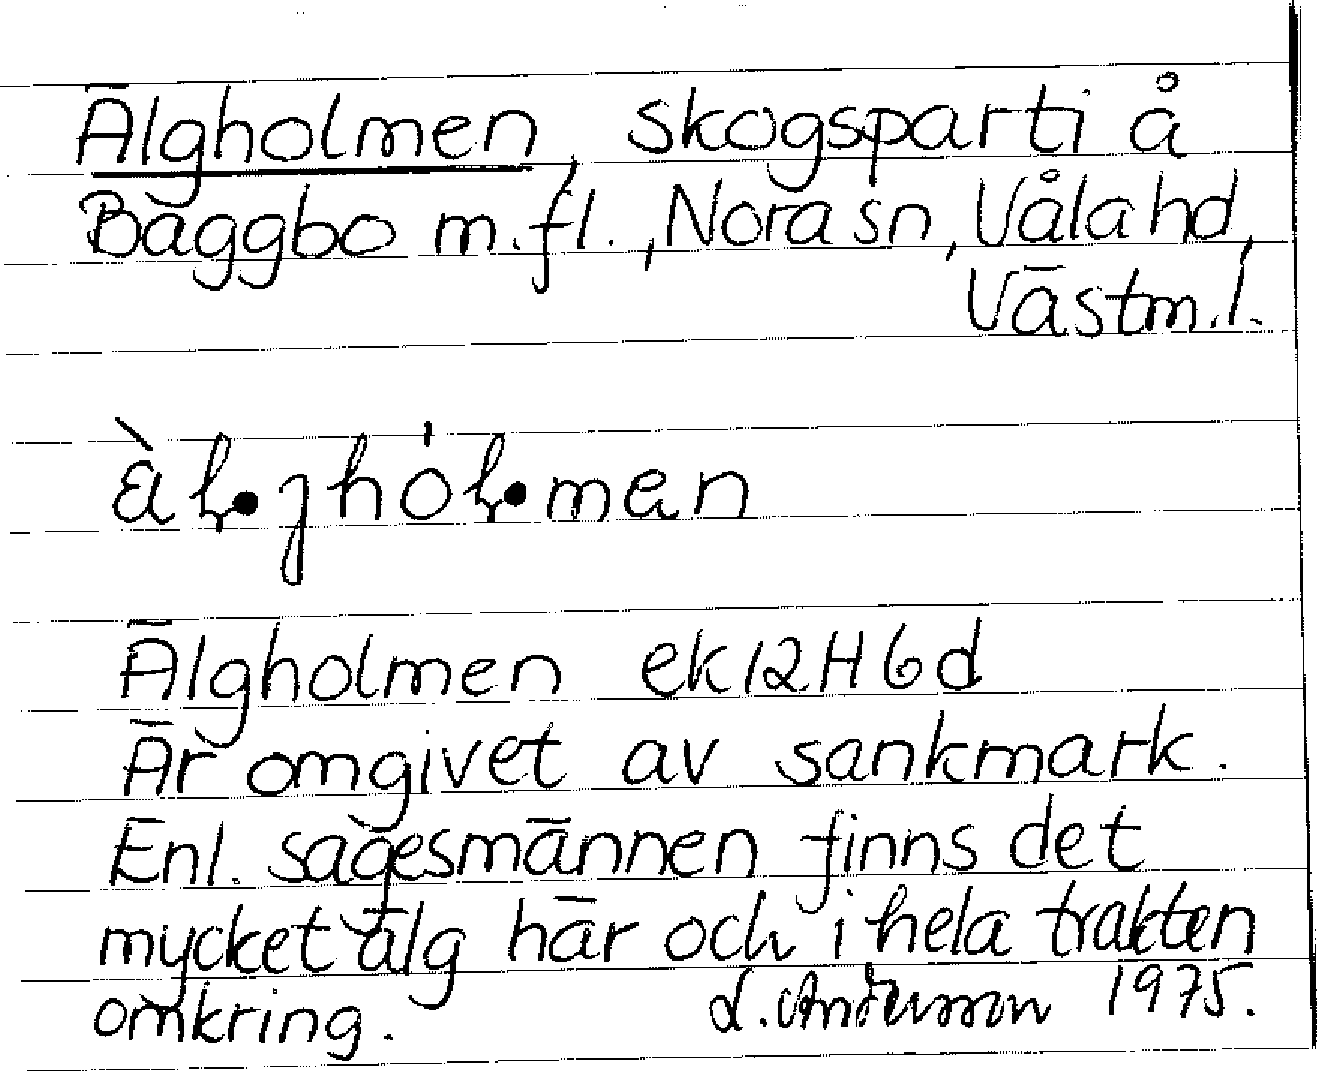 Älgholmen, skogsparti å
Baggbo m.fl., Nora sn, Våla hd,
Västm.l.
Älgholmen ek 12H6d
Är omgivet av sankmark.
Enl. sagesmännen finns det
mycket älg här och i hela trakten
omkring. L. Andersson 1975.